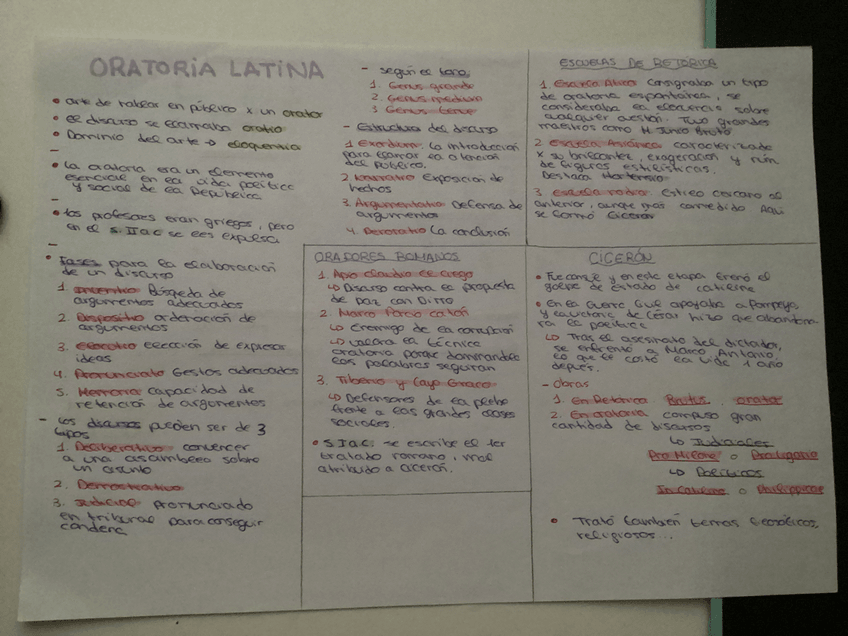 ORATORIA LATINA
• arte de hablar en público x un orator
• el discurso se llamaba oratio
• Dominio del arte → eloquentia
–
• la oratoria era un elemento
esencial en la vida política
y social de la República
–
• los profesores eran griegos, pero
en el s. II a.C se les expulsa
–
• Fases para la elaboración
de un discurso
1 Inventio Búsqueda de
argumentos adecuados
2 Dispositio ordenación de
argumentos
3. Elocutio elección de expresar
ideas
4. Pronunciatio Gestos adecuados
5. Memoria capacidad de
retención de argumentos
– Los discursos pueden ser de 3
tipos
1 Deliberativo convencer
a una asamblea sobre
un asunto
2. Demostrativo
3. Judicial pronunciado
en tribunal para conseguir
condena
– según el tono
1. Genus grande
2. Genus medium
3 Genus leve
– Estructura del discurso
1 Exordium la introducción
para llamar la atención
del público.
2 Narratio Exposición de
hechos
3. Argumentatio Defensa de
argumentos
4. Peroratio La conclusión
ESCUELAS DE RETÓRICA
1. Escuela Ática Consignaba un tipo
de oratoria espontánea, se
consideraba la elocuencia sobre
cualquier cuestión. Tuvo grandes
maestros como M. Junio Bruto
2 Escuela Asiánica caracterizada
x su brillantez, exageración y
de figuras estilísticas.
Destaca Hortensio
3. Escuela rodia. Estilo cercano al
anterior, aunque más comedido Aquí
se formó Cicerón
ORADORES ROMANOS
1. Apio Claudio el ciego
↳ Discurso contra la propuesta
de paz con Pirro
2. Marco Porcio Catón
↳ Enemigo de la corrupción
↳ valora la técnica
oratoria porque dominandola
las palabras seguirán
3. Tiberio y Cayo Graco
↳ Defensores de la plebe
frente a las grandes clases
sociales.
• S I a.C: se escribe el 1er
tratado romano, mal
atribuido a cicerón.
CICERÓN
• Fue consul y en esta etapa frenó el
golpe de estado de Catilina
• En la Guerra Civil apoyaba a Pompeyo,
y la victoria de César hizo que abandona-
ra la política
↳ Tras el asesinato del dictador,
se enfrentó a Marco Antonio,
lo que le costó la vida 1 año
depués.
– Obras
1. En Retórica Brutus, orator
2. En oratoria compuso gran
cantidad de discursos
↳ Judiciales
Pro Milone o Pro Ligario
↳ Políticos
In Catilina o Philippicae
• Trató también temas filosóficos,
religiosos...